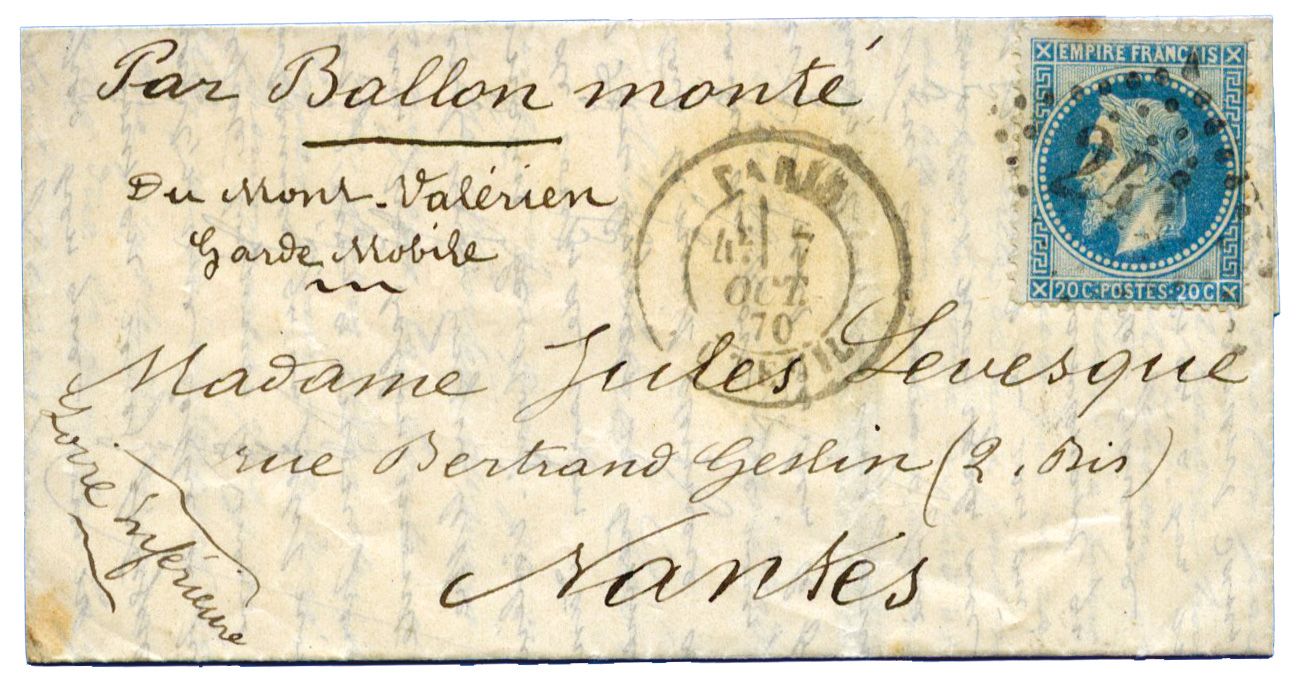 Par Ballon monté
Du Mont-Valérien
Garde Mobile
EMPIRE FRANCAIS
20C·POSTES·20C
PARIS
4E 7
OCT.
70
Madame Jules Levesque
rue Bertrand Geslin (2. Bis)
Nantes
Loire Inférieure